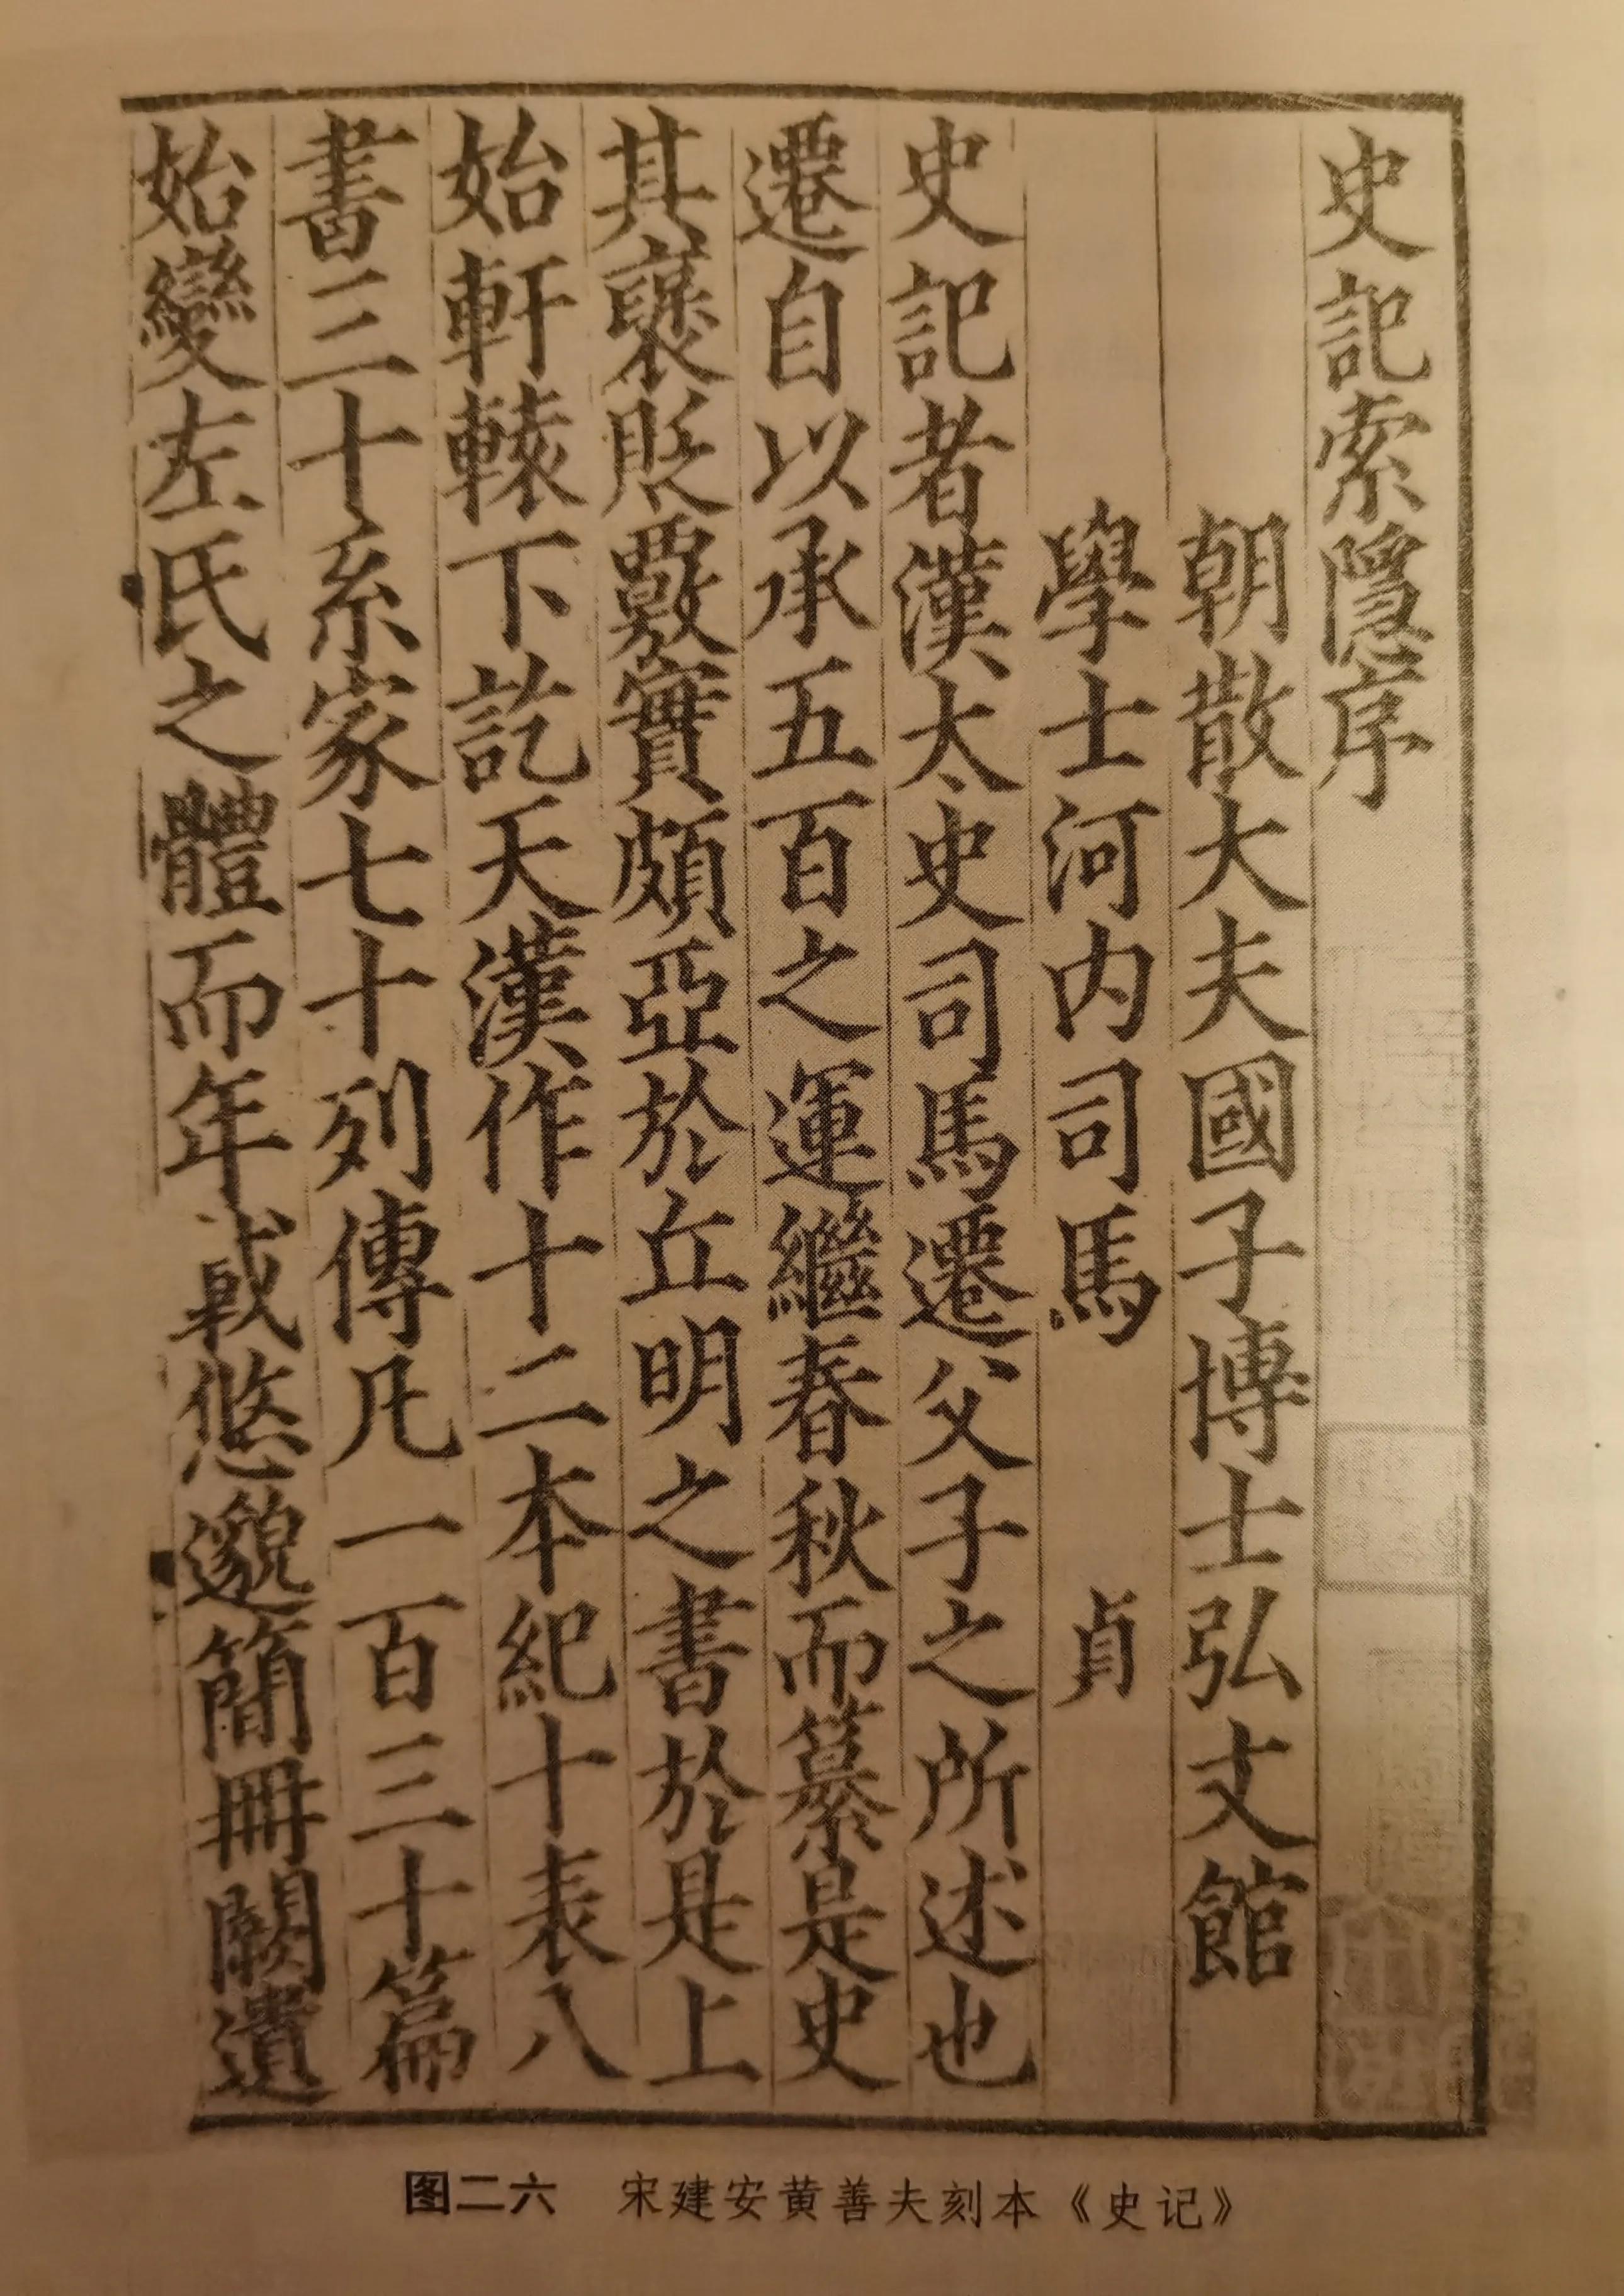 史記索隱序
朝散大夫國子博士弘文館
學士河内司馬貞
史記者漢太史司馬遷父子之所述也
遷自以承五百之運繼春秋而纂是史
其襃貶覈實頗亞於丘明之書於是上
始軒轅下訖天漢作十二本紀十表八
書三十系家七十列傳凡一百三十篇
始變左氏之體而年載悠邈簡冊闕遺
图二六 宋建安黄善夫刻本《史记》